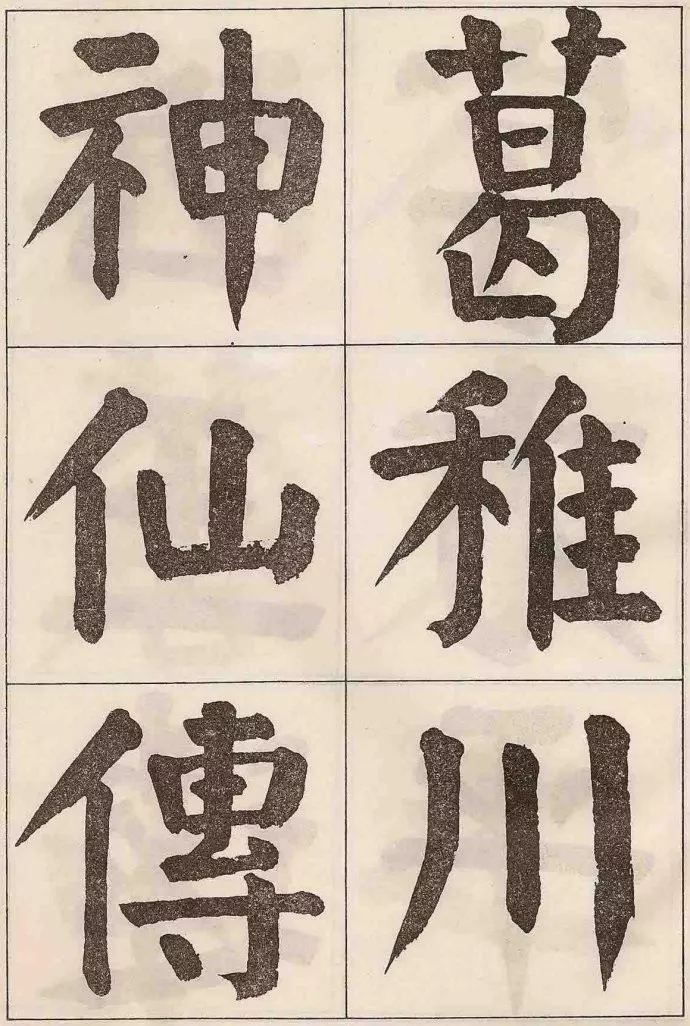 葛稚川
神仙傳